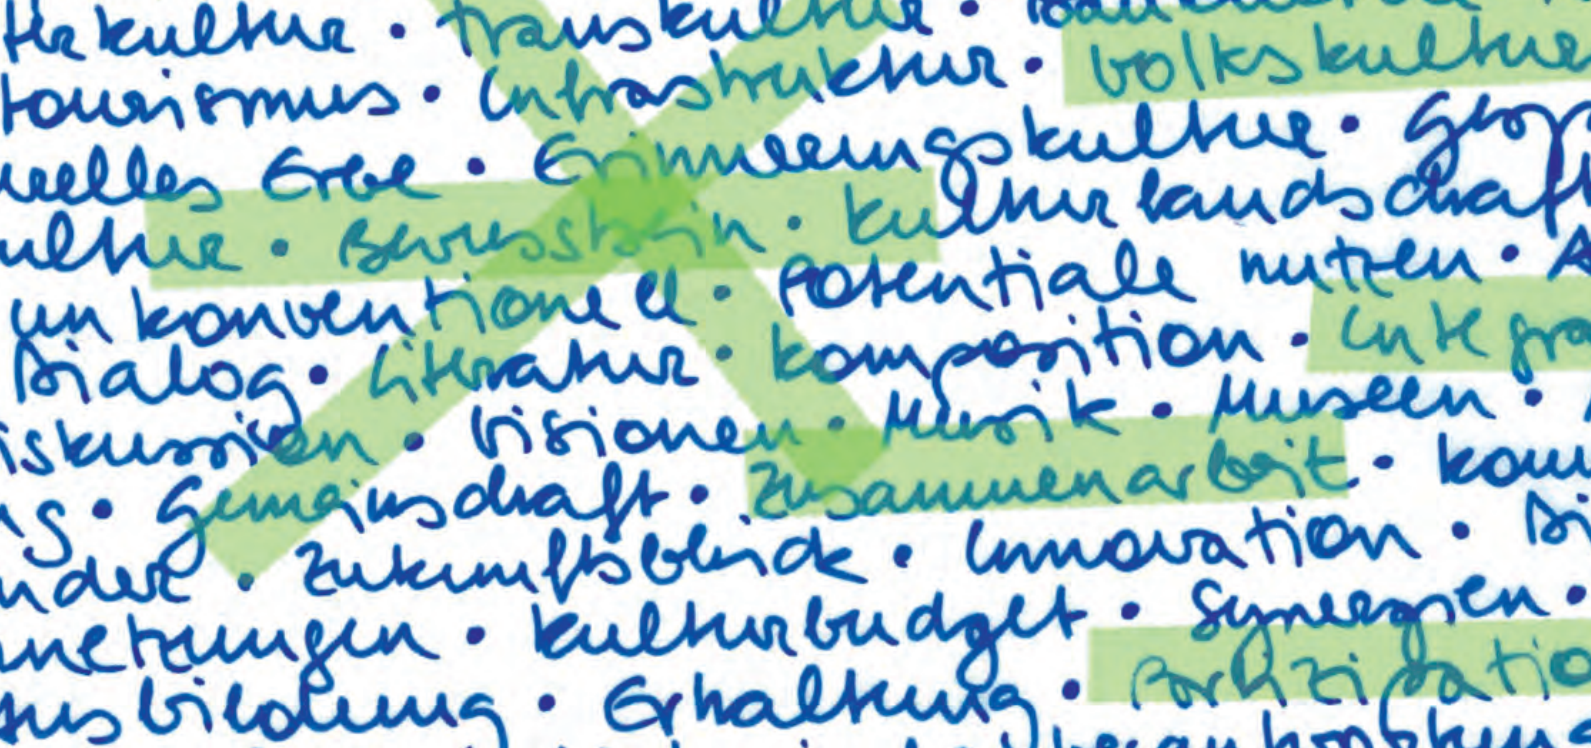 kultur · Transkultur ·
tourismus · Infrastruktur · Volkskultur
elles Erbe · Erinnerungskultur ·
ultur · Bewusstsein · Kulturlandschaft
unkonventionell · Potentiale nutzen ·
Dialog · Literatur · Komposition · Integra
iskussion · Visionen · Musik · Museen ·
g · Gemeinschaft · Zusammenarbeit · kom
nder · Zukunftsblick · Innovation · Di
netzungen · Kulturbudget · Synergien ·
usbildung · Erhaltung · Partizipatio